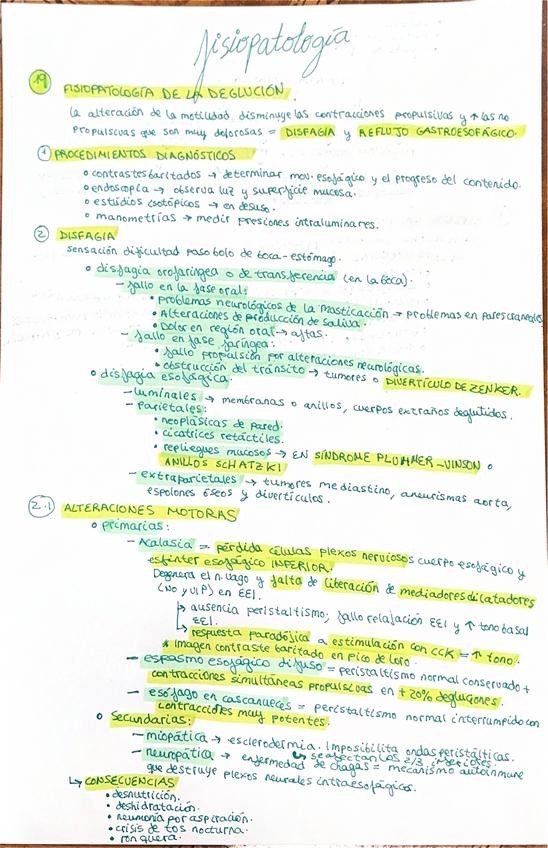 fisiopatología
19 FISIOPATOLOGÍA DE LA DEGLUCIÓN.
la alteración de la motilidad, disminuye las contracciones propulsivas y ↑ las no
propulsivas que son muy dolorosas = DISFAGIA y REFLUJO GASTROESOFÁGICO.
1 PROCEDIMIENTOS DIAGNÓSTICOS
• contrastes baritados → determinar mov. esofágico y el progreso del contenido.
• endoscopia → observa luz y superficie mucosa.
• estudios isotópicos → en desuso.
• manometrías → medir presiones intraluminares.
2 DISFAGIA
sensación dificultad paso bolo de boca-estómago.
o disfagia orofaríngea o de transferencia (en la boca).
- fallo en la fase oral:
• problemas neurológicos de la masticación → problemas en pares craneales
• Alteraciones de producción de saliva.
• Dolor en región oral → aftas.
- fallo en fase faríngea:
• fallo propulsión por alteraciones neurológicas.
• obstrucción del tránsito → tumores o DIVERTÍCULO DE ZENKER.
o disfagia esofágica:
- luminales → membranas o anillos, cuerpos extraños deglutidos.
- parietales:
• neoplásicas de pared.
• cicatrices retráctiles.
• repliegues mucosos → EN SÍNDROME PLUMMER-VINSON o
ANILLOS SCHATZKI
- extraparietales → tumores mediastino, aneurismas aorta,
espolones óseos y divertículos.
2.1 ALTERACIONES MOTORAS
o primarias:
- Acalasia = pérdida células plexos nerviosos cuerpo esofágico y
esfínter esofágico INFERIOR.
Degenera el n. vago y falta de liberación de mediadores dilatadores
(NO y VIP) en EEI.
↳ ausencia peristaltismo; fallo relajación EEI y ↑ tono basal
EEI.
↳ respuesta paradójica a estimulación con CCK = ↑ tono.
* Imagen contraste baritado en pico de loro.
- espasmo esofágico difuso = peristaltismo normal conservado +
contracciones simultáneas propulsivas en + 20% degluciones.
- esófago en cascanueces = peristaltismo normal interrumpido con
contracciones muy potentes.
o Secundarias:
- miopática → esclerodermia. Imposibilita ondas peristálticas.
↳ se afectan los 2/3 inferiores.
- neuropática → enfermedad de chagas = mecanismo autoinmune
que destruye plexos neurales intraesofágicos.
↳ CONSECUENCIAS
• desnutrición.
• deshidratación.
• neumonía por aspiración.
• crisis de tos nocturna.
• ronquera.